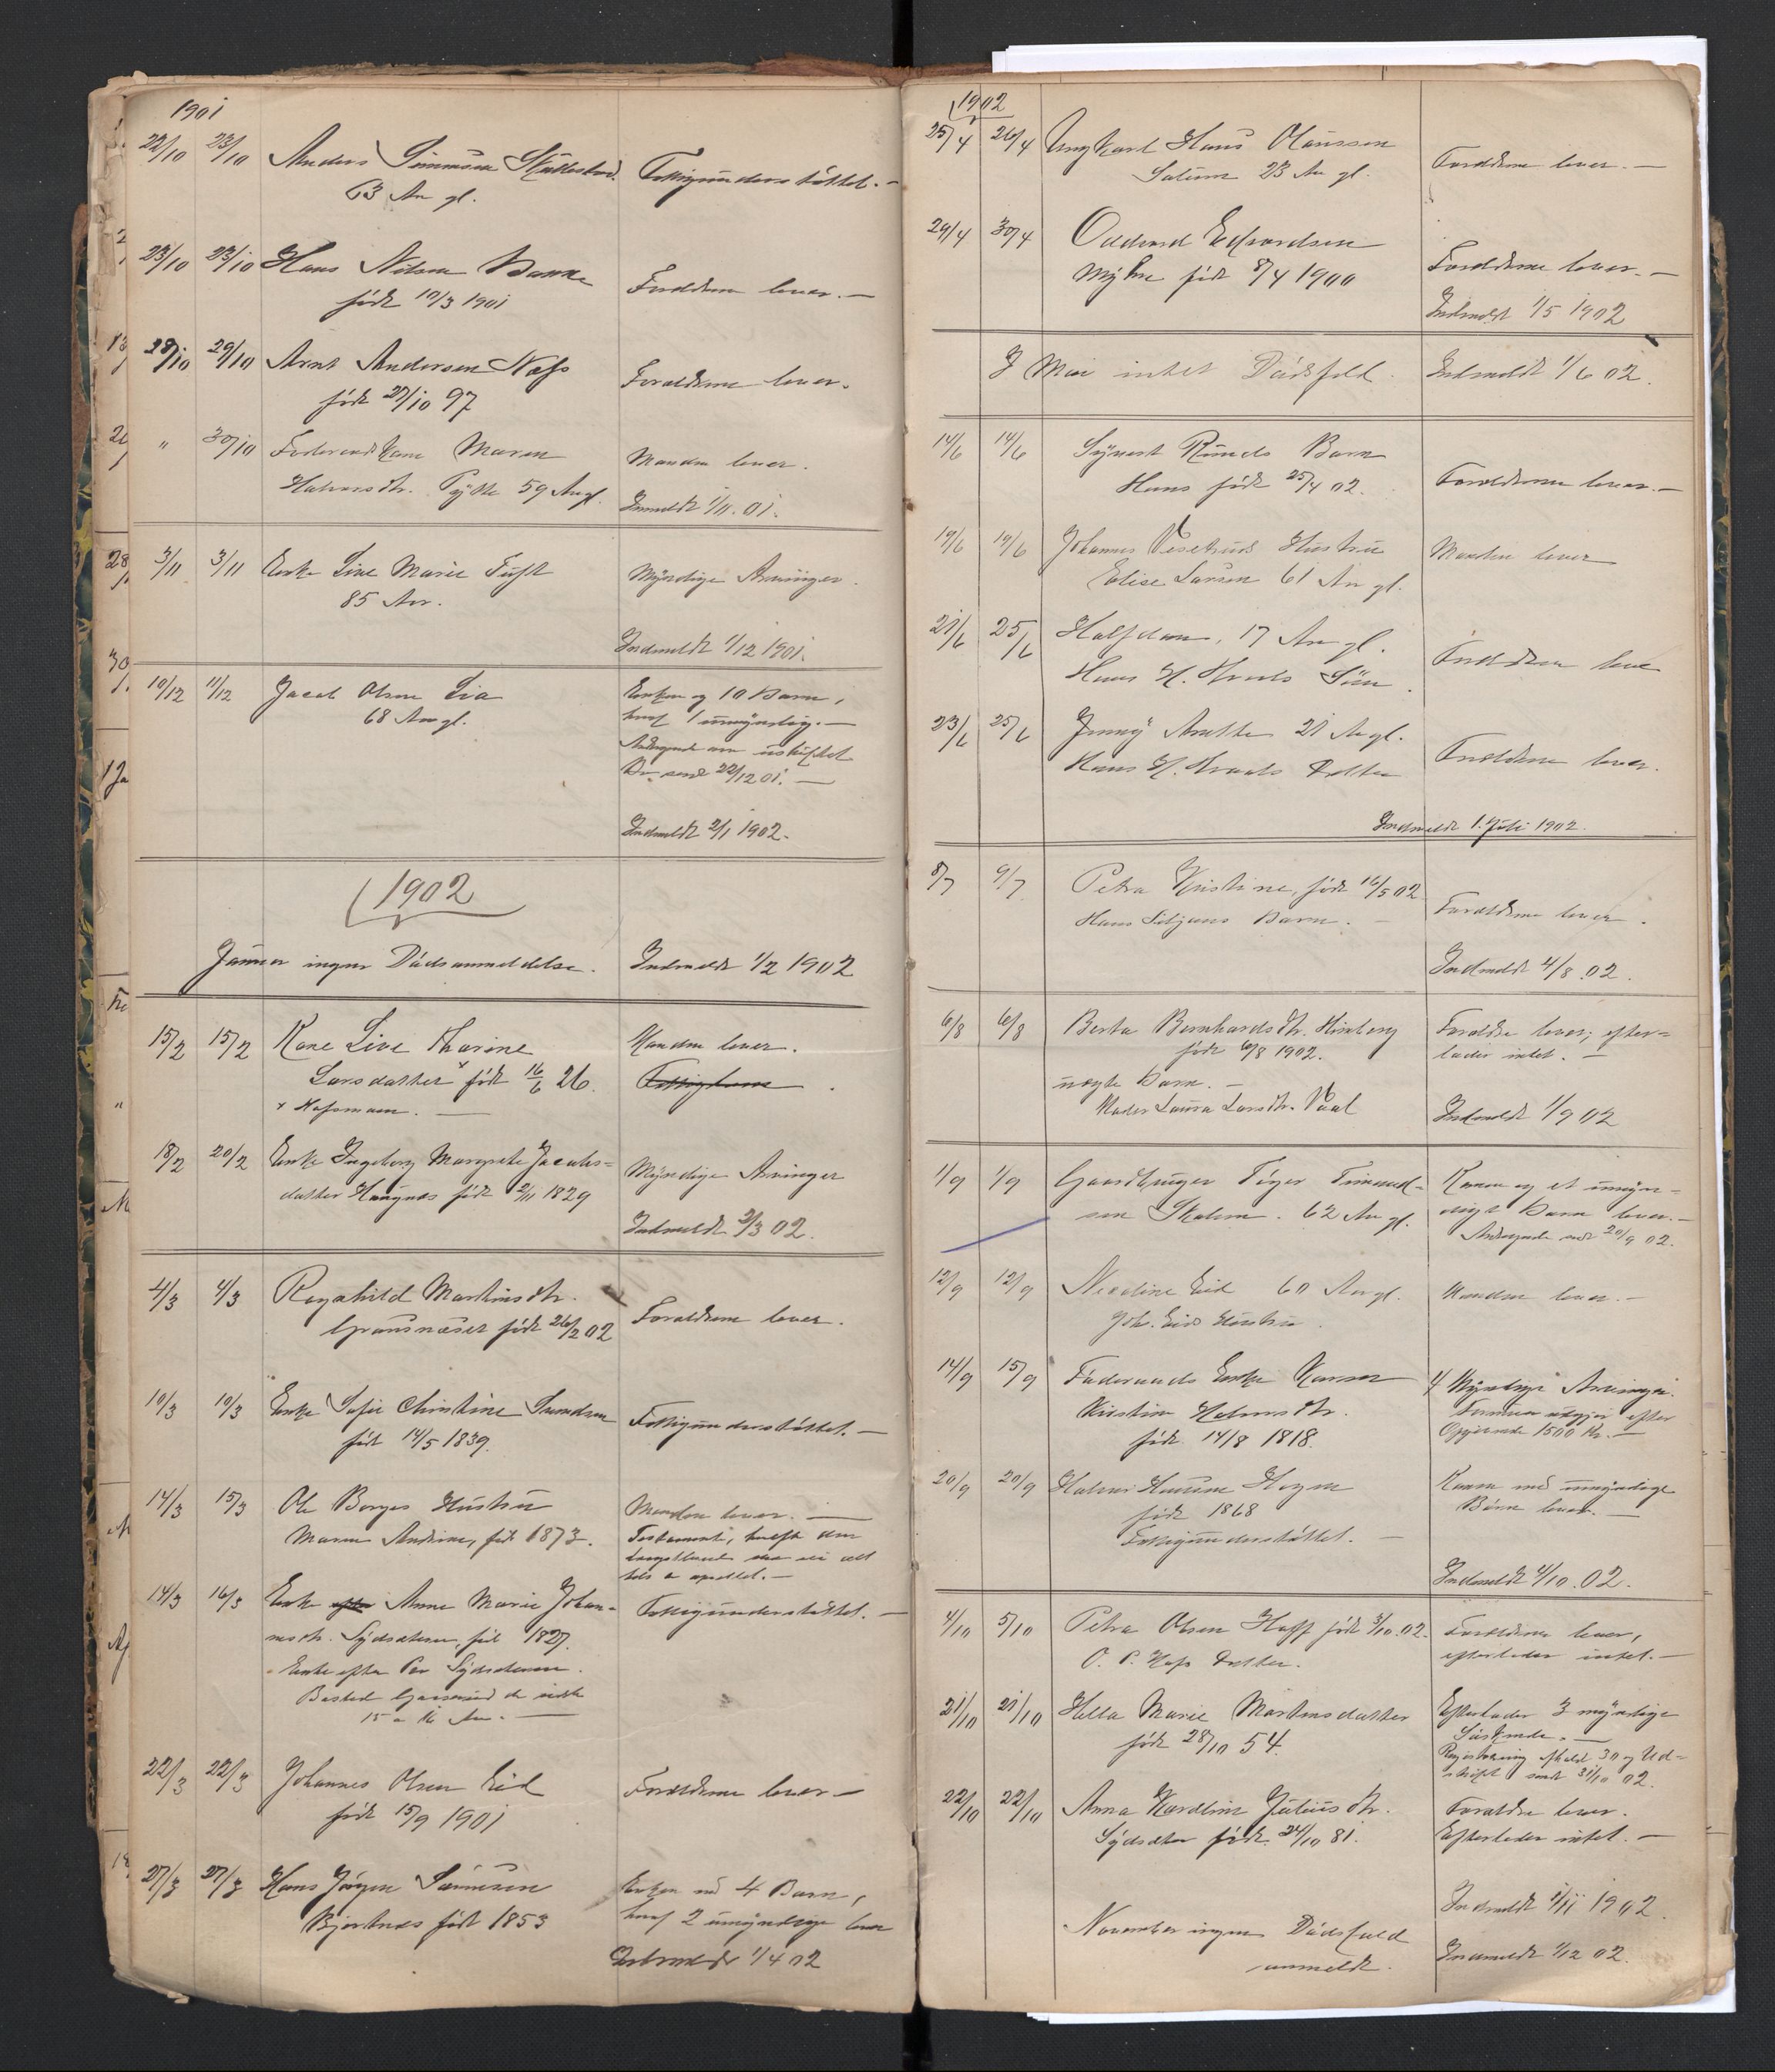 1901
22/10 23/10 Anders Simensen
63 Aar gl. Fattigunderstöttet.-
23/10 23/10 Hans Nilsen Bakke
født 10/3 1901 Forældrene lever.-
28/10 29/10 Arnt Andersen Næss
født 27/10 97 Forældrene lever.
" 30/10 Føderaadskone Maren
Halvorsdtr. 59 Aar gl. Manden lever.
Indmeldt 1/11.01.
3/11 3/11 Enke Live Marie Tuft
85 Aar. Myndige Arvinger.
Indmeldt 1/12 1901.
10/12 11/12 Jacob Olsen Lia
68 Aar gl. Enken og 10 Barn,
hvoraf 1 umyndig.-
Andragende om uskiftet
Bo sendt 22/12 01.-
Indmeldt 2/1 1902.
1902
Januar ingen Dödsanmeldelse. Indmeldt 1/2 1902
15/2 15/2 Kone Live Karine
Larsdatter x født 16/6 26. Manden lever.
x Næssmoen.
18/2 20/2 Enke Ingeborg Margrete Jacobs=
datter Haugnæs født 2/11 1829 Myndige Arvinger
Indmeldt 2/3 02.
4/3 4/3 Ragnhild Martinsdtr.
Gransnæset født 26/2 02 Forældrene lever.
10/3 10/3 Enke Sofie Christine
født 14/5 1839. Fattigunderstöttet.-
14/3 15/3 Ole Borges Hustru
Maren Andrine, født 1873. Manden lever.-
Testamente, hvorefter den
længstlevende
14/3 16/3 Enke Anne Marie Johan=
nesdtr. født 1827. Fattigunderstöttet.-
Enke efter Per
Bosted de sidste
15 a 16 Aar.-
22/3 22/3 Johannes Olsen Eid
født 15/9 1901 Forældrene lever-
27/3 27/3 Hans Jörgen
Bjertnæs født 1853 Enken med 4 Barn,
hvoraf 2 umyndige lever
Indmeldt 1/4 02
1902
25/4 26/4 Ungkarl Hans Olaussen
23 Aar gl. Forældrene lever.-
29/4 30/4 Oddvard Edvardsen
Myhre født 8/4 1900 Forældrene lever.-
Indmeldt 1/5 1902
I Mai intet Dödsfald. Indmeldt 1/6 02.
14/6 14/6 Syvert Ruuds Barn
Hans født 25/4 02. Forældrene lever.-
19/6 19/6 Johannes Hustru
Elise Larsen 61 Aar gl. Manden lever
21/6 25/6 Halfdan, 17 Aar gl.
Hans H. Sön. Forældrene lever
23/6 25/6 Jenny 21 Aar gl.
Hans H. Datter Forældrene lever.
Indmeldt 1. Juli 1902.
8/7 9/7 Petra Kristine, født 16/5 02
Hans Siljans Barn.- Forældrene lever.
Indmeldt 4/8.02.
6/8 6/8 Berta Bernhardsdtr.
født 6/8 1902. Forældre lever; efter=
lader intet.-
uægte Barn.-
Moder Laura Larsdtr. Indmeldt 1/9 02
1/9 1/9 Gaardbruger
sen 62 Aar gl. Konen og et umyn=
digt Barn lever.-
Andragende sendt 20/9 02.
12/9 12/9 Nicoline Eid 60 Aar gl.
Joh. Eids Hustru. Manden lever.-
14/9 15/9 Føderaads Enke Karen
Kirstine Halvorsdtr.
født 14/8 1818. 4 Myndige Arvinger.
Formuen efter
Opgivende 1500 Kr.-
20/9 20/9 Halvor
født 1868 Konen med umyndige
Børn lever.-
Fattigunderstöttet.-
Indmeldt 4/10.02.
4/10 5/10 Petra Olsen Hoff født 3/10.02.
O. P. Hoffs Datter. Forældrene lever,
efterlader intet.-
21/10 21/10 Helle Marie Martinsdatter
født 28/10 54. Efterlader 3 myndige
Söskende.-
Registrering afholdt 30 og Ud=
skrift sendt 31/10 02.
22/10 22/10 Anna Karoline Juliusdtr.
født 24/10 81. Forældre lever.
Efterlader intet.-
Indmeldt 1/11 1902.
November ingen Dödsfald
anmeldt. Indmeldt 1/12 02.